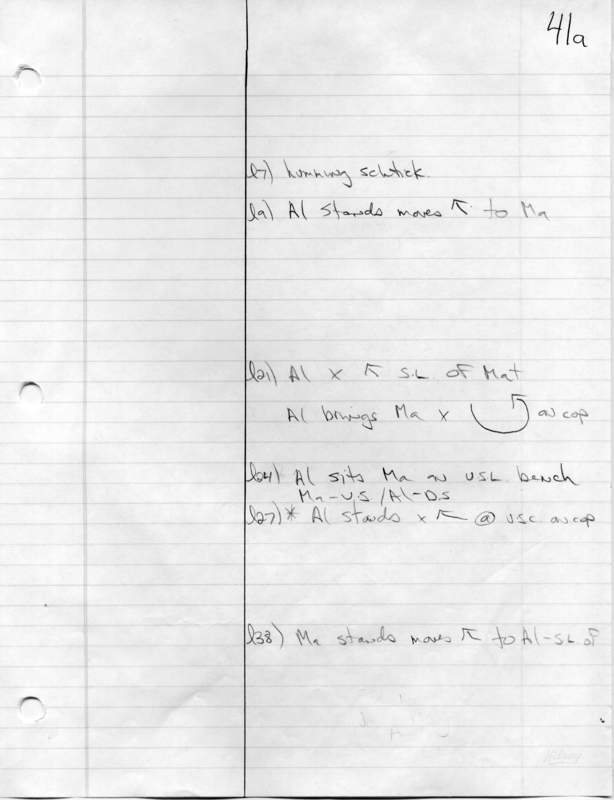 41a
l7) humming schtick.
l9) Al stands moves ↖ to Ma
l21) Al x ↖ S.L of Mat
Al brings Ma x on cop
l24) Al sits Ma on USL bench
Ma-US / Al-DS
l27)* Al stands x ↖ @ USC on cop
l38) Ma stands moves ↖ to Al-SL of
Hilroy